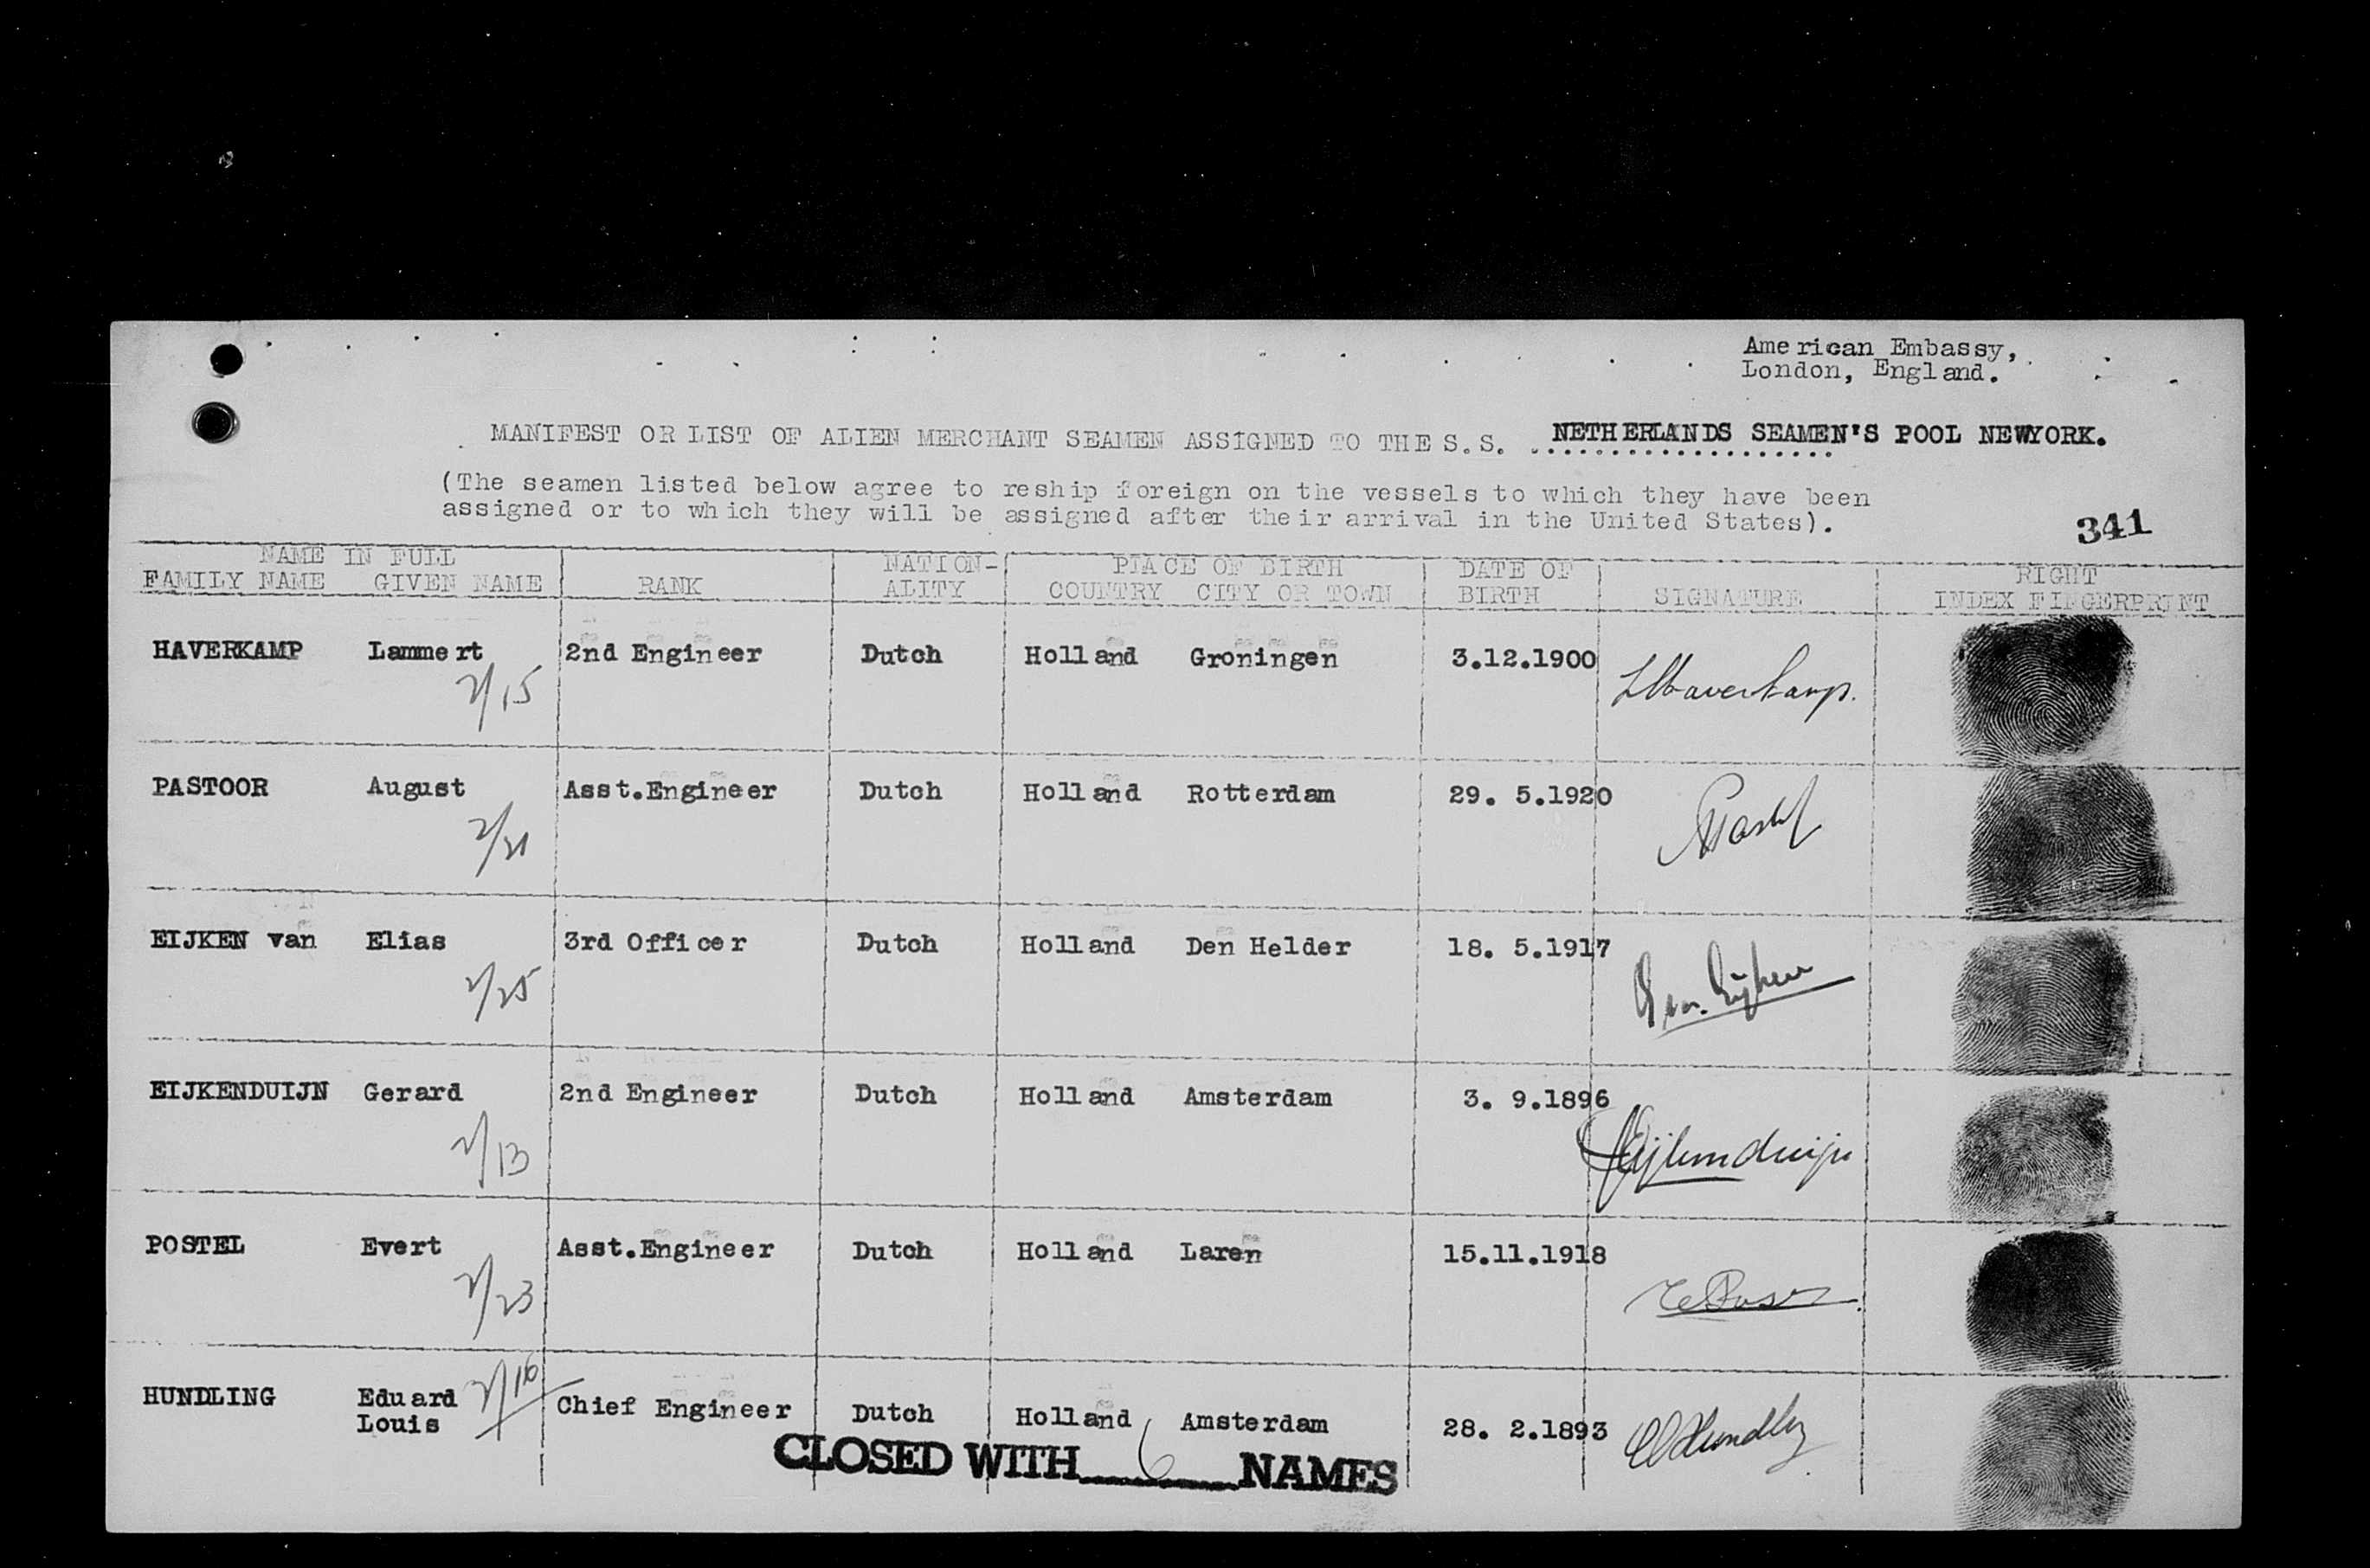 American Embassy,
London, England.
MANIFEST OR LIST OF ALIEN MERCHANT SEAMEN ASSIGNED TO THE S.S. NETHERLANDS SEAMEN'S POOL NEWYORK.
(The seamen listed below agree to reship foreign on the vessels to which they have been
assigned or to which they will be assigned after their arrival in the United States).
341
NAME IN FULL NATION- PLACE OF BIRTH DATE OF RIGHT
FAMILY NAME GIVEN NAME RANK ALITY COUNTRY CITY OR TOWN BIRTH SIGNATURE INDEX FINGERPRINT
HAVERKAMP Lammert 2nd Engineer Dutch Holland Groningen 3.12.1900
2/15 LHaverkamp.
PASTOOR August Asst.Engineer Dutch Holland Rotterdam 29. 5.1920
EIJKEN van Elias 3rd Officer Dutch Holland Den Helder 18. 5.1917
2/25 E van Eijken
EIJKENDUIJN Gerard 2nd Engineer Dutch Holland Amsterdam 3. 9.1896
2/13 Eijkenduijn
POSTEL Evert Asst.Engineer Dutch Holland Laren 15.11.1918
2/23
HUNDLING Eduard 2/16 Chief Engineer Dutch Holland Amsterdam 28. 2.1893
Louis
CLOSED WITH 6 NAMES